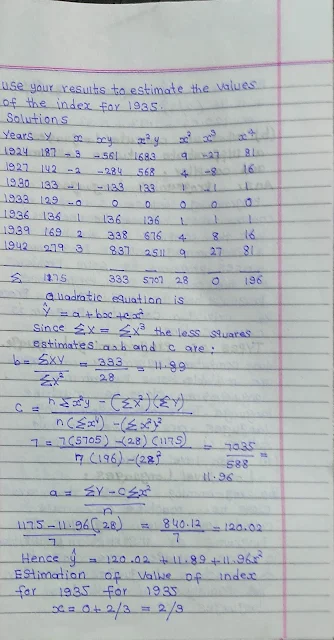 use your results to estimate the values
of the index for 1935.
Solutions
Years Y x xy x²y x² x³ x⁴
1924 187 -3 -561 1683 9 -27 81
1927 142 -2 -284 568 4 -8 16
1930 133 -1 -133 133 1 -1 1
1933 129 -0 0 0 0 0 0
1936 136 1 136 136 1 1 1
1939 169 2 338 676 4 8 16
1942 279 3 837 2511 9 27 81
Σ 1175 333 5707 28 0 196
quadratic equation is
Ŷ = a + bx + cx²
Since ΣX = ΣX³ the less squares
estimates a,b and c are:
b = ΣXY / ΣX² = 333 / 28 = 11.89
C = nΣx²y - (ΣX²)(ΣY) / n(ΣX⁴) - (ΣX²)²
7 = 7(5705) - (28)(1175) / 7(196) - (28)² = 7035 / 588 =
11.96
a = ΣY - CΣx² / n
1175 - 11.96(28) / 7 = 840.12 / 7 = 120.02
Hence ŷ = 120.02 + 11.89 + 11.96x²
Estimation of Value of index
for 1935 for 1935
x = 0 + 2/3 = 2/3